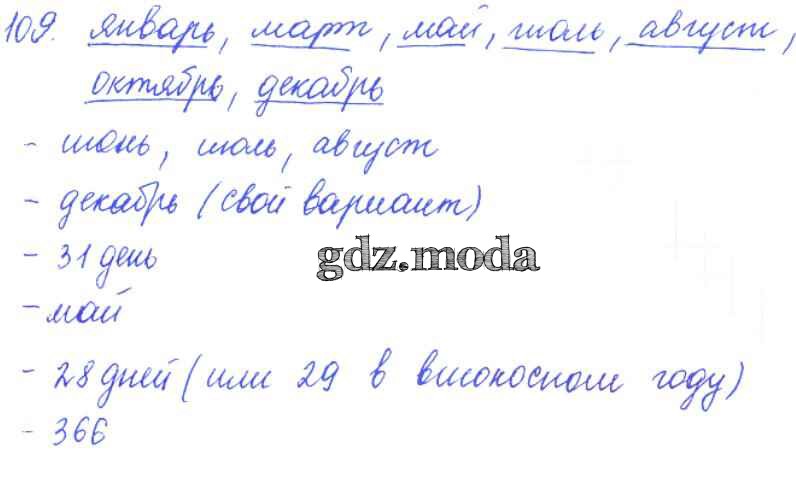 109. январь, март, май, июль, август,
октябрь, декабрь
- июнь, июль, август
- декабрь (свой вариант)
- 31 день
gdz.moda
- май
- 28 дней (или 29 в високосном году)
- 366